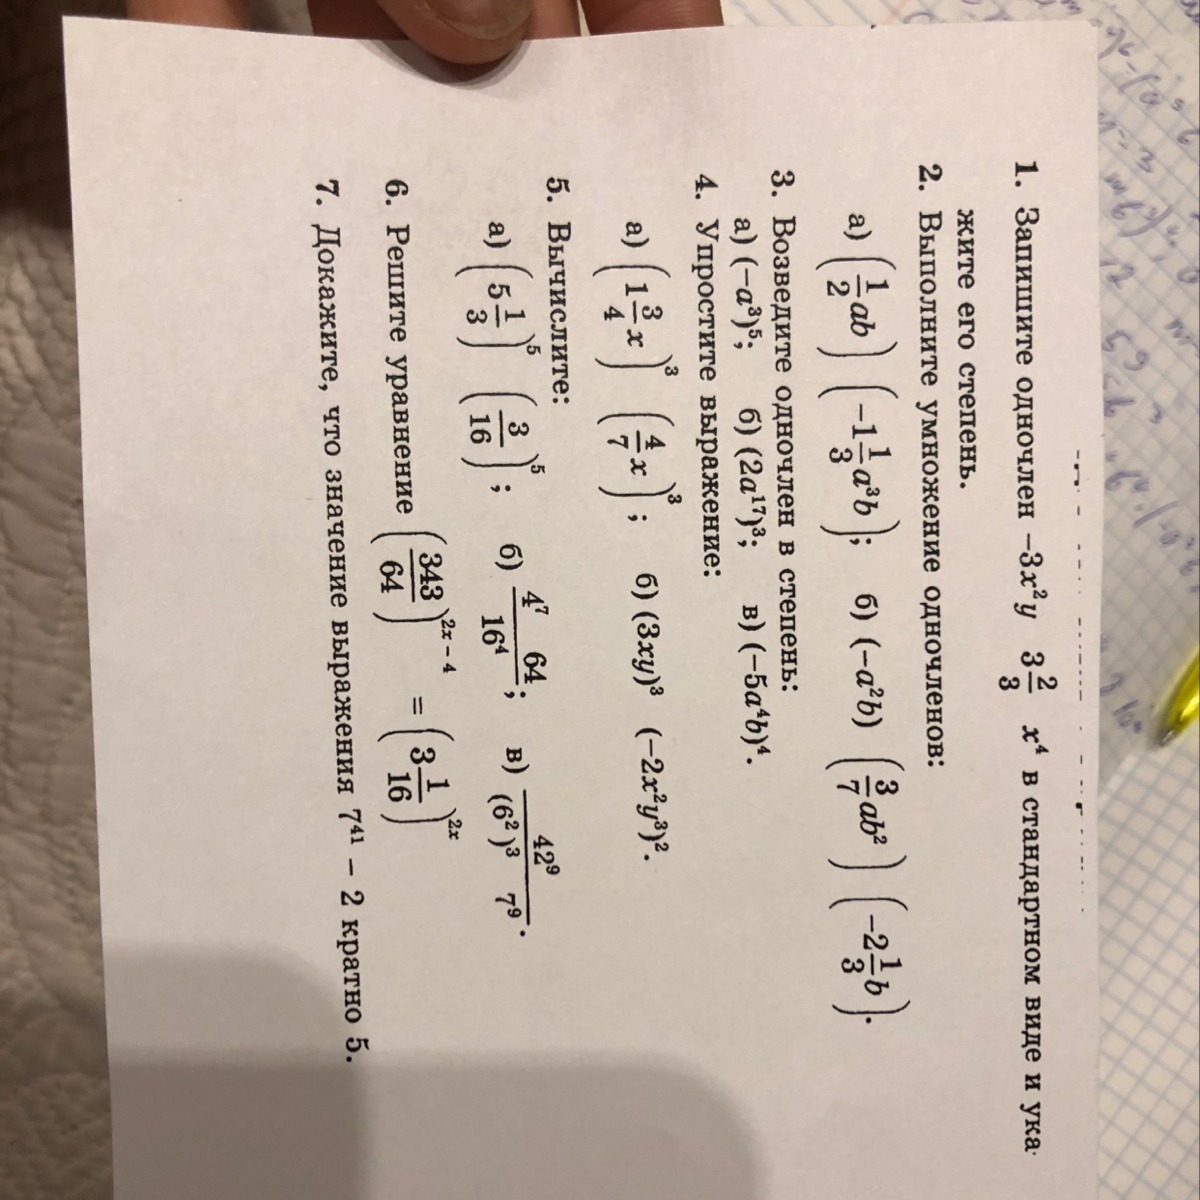 1. Запишите одночлен −3x²y 3 2/3 x⁴ в стандартном виде и ука
жите его степень.
2. Выполните умножение одночленов:
а) (1/2 ab) (−1 1/3 a³b); б) (−a²b) (3/7 ab²) (−2 1/3 b).
3. Возведите одночлен в степень:
а) (−a³)⁵; б) (2a¹⁷)³; в) (−5a⁴b)⁴.
4. Упростите выражение:
а) (1 3/4 x)³ (4/7 x)³; б) (3xy)³ (−2x²y³)².
5. Вычислите:
а) (5 1/3)⁵ (3/16)⁵; б) 4⁷ 64/16⁴; в) 42⁹/(6²)³ 7⁹.
6. Решите уравнение (343/64)²ˣ⁻⁴ = (3 1/16)²ˣ
7. Докажите, что значение выражения 7⁴¹ − 2 кратно 5.